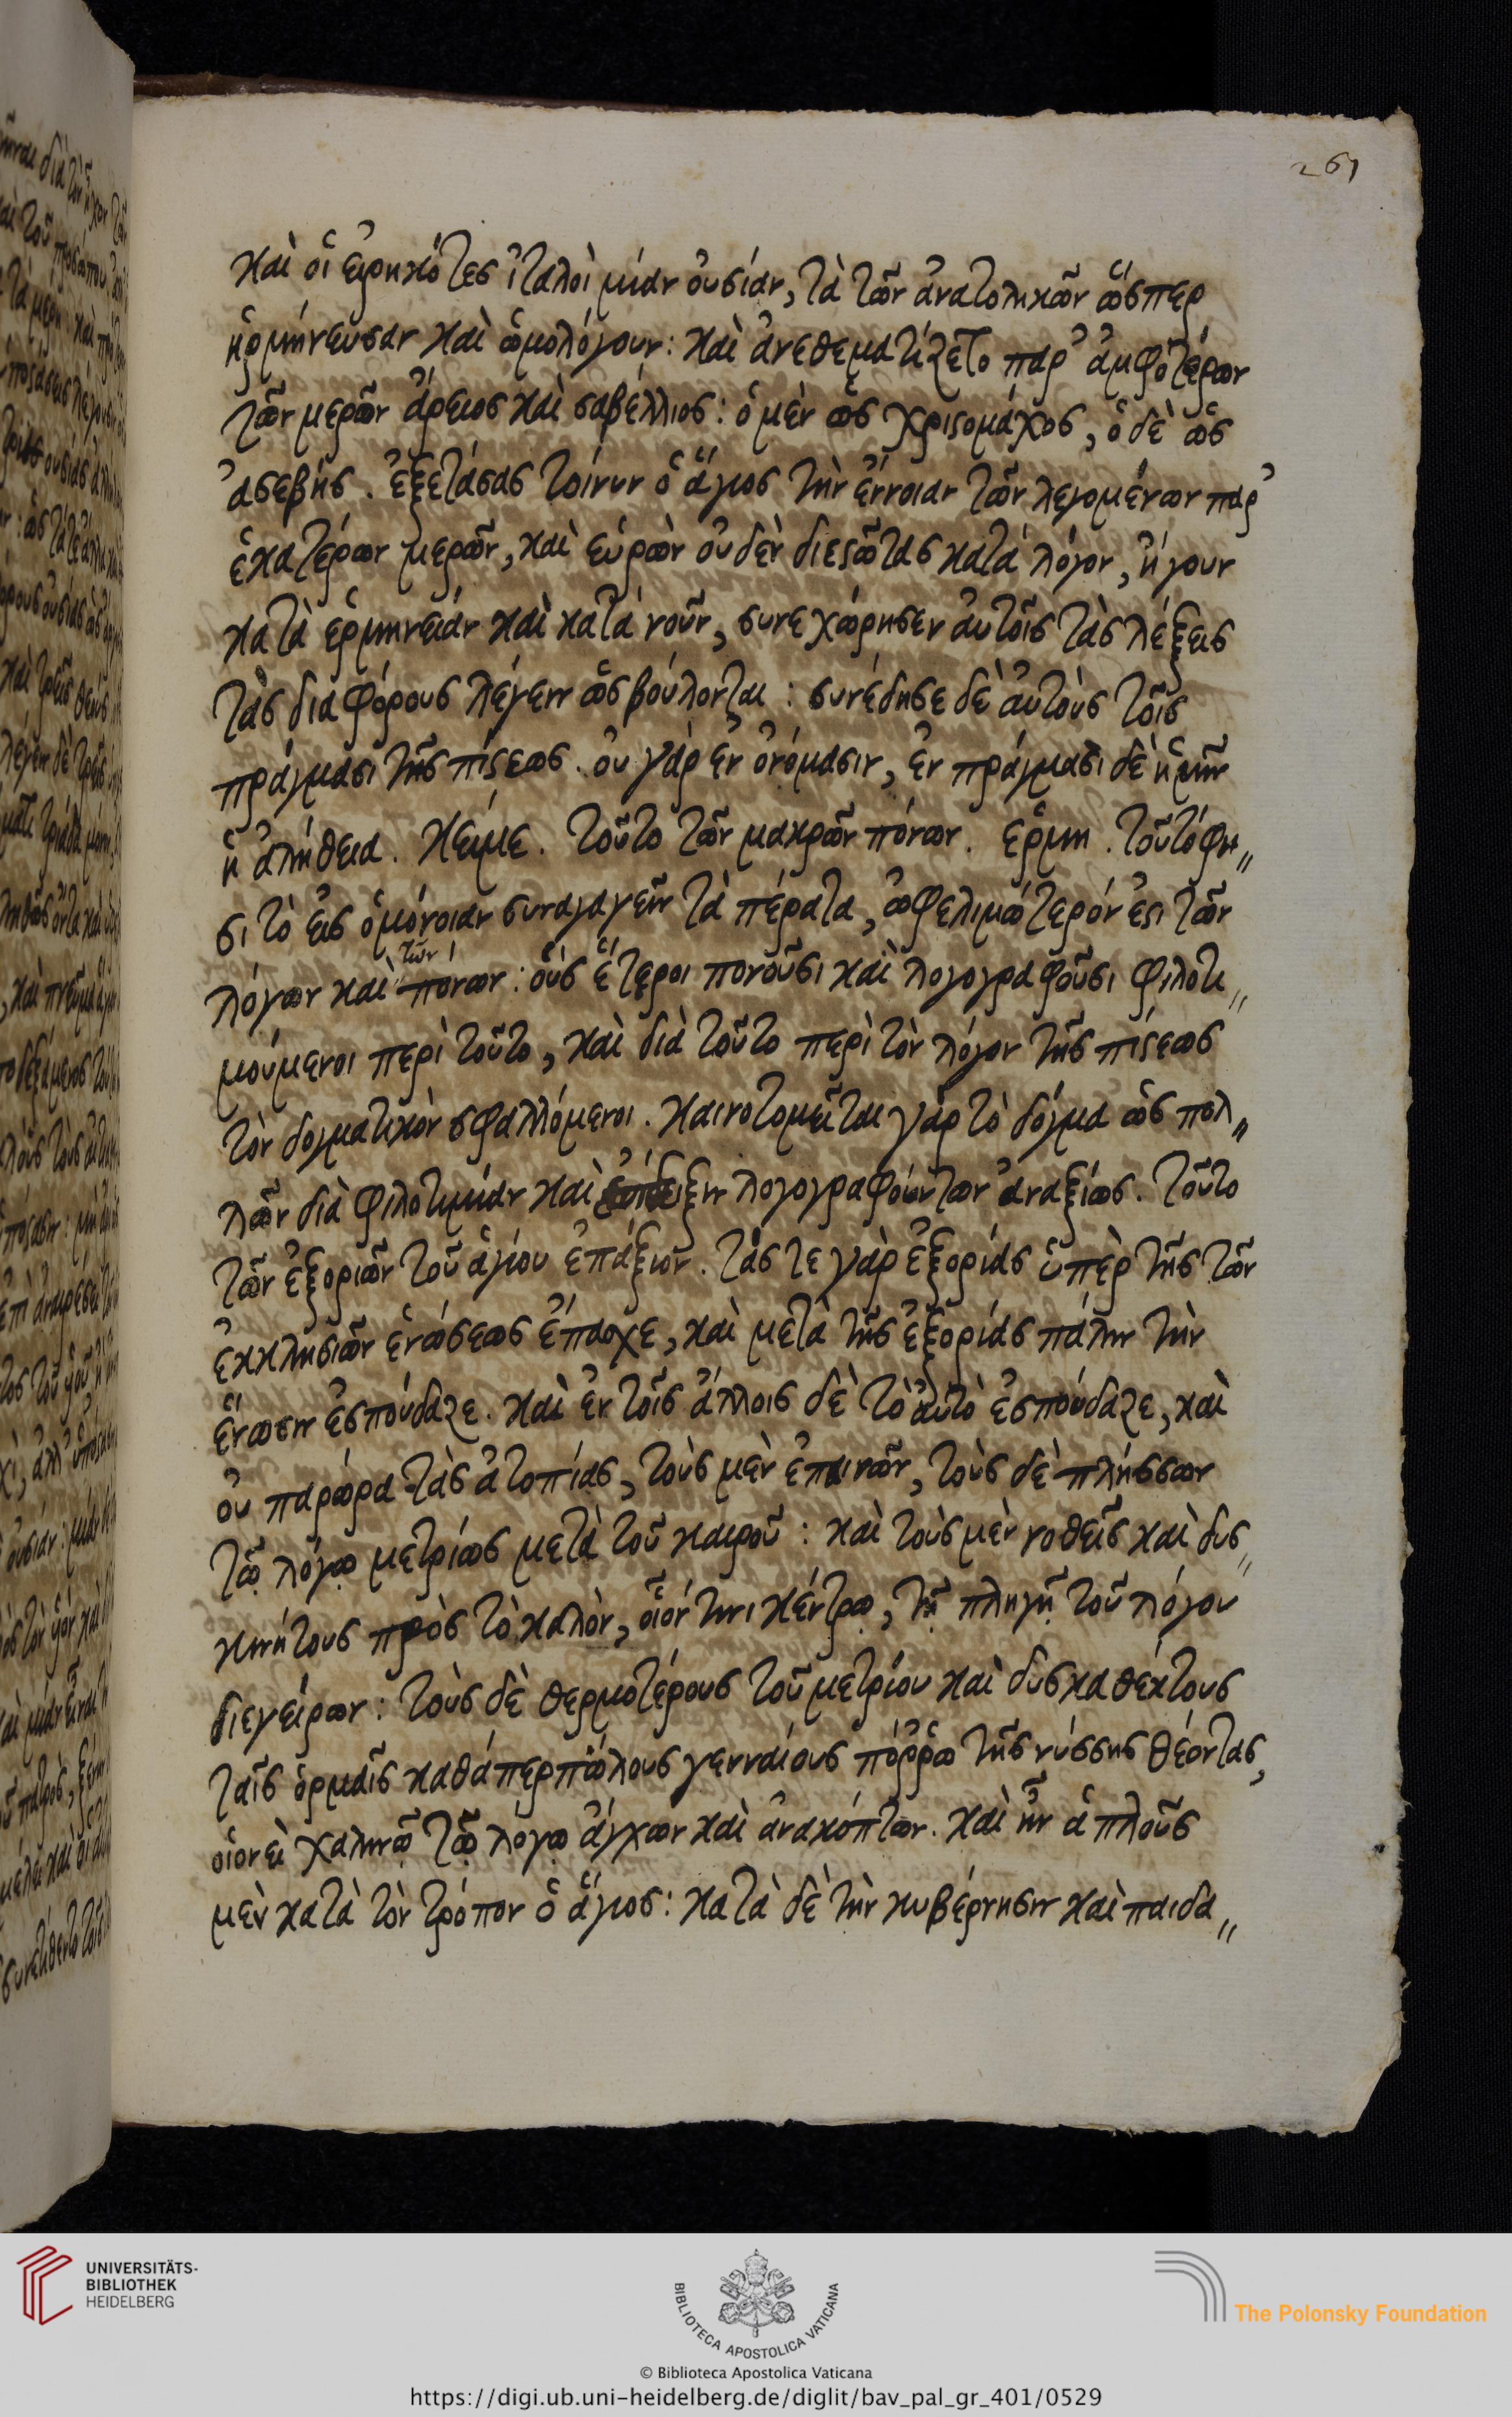 261
καὶ οἱ εἰρηκότες ἰταλοὶ μίαν οὐσίαν, τὰ τῶν ἀνατολικῶν ὥσπερ
ἡρμήνευσαν καὶ ὡμολόγουν: καὶ ἀνεθεματίζετο παρ' ἀμφοτέρων
τῶν μερῶν ἄρειος καὶ σαβέλλιος: ὁ μὲν ὡς χριστομάχος, ὁ δὲ ὡς
ἀσεβής. ἐξετάσας τοίνυν ὁ ἅγιος τὴν ἔννοιαν τῶν λεγομένων παρ'
ἑκατέρων μερῶν, καὶ εὑρὼν οὐδὲν διεστῶτας κατὰ λόγον, ἤγουν
κατὰ ἑρμηνείαν καὶ κατὰ νοῦν, συνεχώρησεν αὐτοῖς τὰς λέξεις
τὰς διαφόρους λέγειν ὡς βούλονται: συνέδησε δὲ αὐτοὺς τοῖς
πράγμασι τῆς πίστεως. οὐ γὰρ ἐν ὀνόμασιν, ἐν πράγμασι δὲ ἡμῖν
ἡ ἀλήθεια. κείμε. τοῦτο τῶν μακρῶν πόνων. ἑρμη. τοῦτό φη"
σι τὸ εἰς ὁμόνοιαν συναγαγεῖν τὰ πέρατα, ὠφελιμώτερόν ἐστι τῶν
λόγων καὶ τῶν πόνων: οὓς ἕτεροι πονοῦσι καὶ λογογραφοῦσι φιλοτι"
μούμενοι περὶ τοῦτο, καὶ διὰ τοῦτο περὶ τὸν λόγον τῆς πίστεως
τὸν δογματικὸν σφαλλόμενοι. καινοτομεῖται γὰρ τὸ δόγμα ὡς πολ"
λῶν διὰ φιλοτιμίαν καὶ ἐπίδειξιν λογογραφούντων ἀναξίως. τοῦτο
τῶν ἐξοριῶν τοῦ ἁγίου ἐπάξιον. τάς τε γὰρ ἐξορίας ὑπὲρ τῆς τῶν
ἐκκλησιῶν ἑνώσεως ἔπασχε, καὶ μετὰ τῆς ἐξορίας πάλιν τὴν
ἕνωσιν ἐσπούδαζε. καὶ ἐν τοῖς ἄλλοις δὲ τὸ αὐτὸ ἐσπούδαζε, καὶ
οὐ παρώρα τὰς ἀτοπίας, τοὺς μὲν ἐπαινῶν, τοὺς δὲ πλήσσων
τῷ λόγῳ μετρίως μετὰ τοῦ καιροῦ: καὶ τοὺς μὲν νοθεῖς καὶ δυσ"
κινήτους πρὸς τὸ καλὸν, οἷόν τινι κέντρῳ, τῇ πληγῇ τοῦ λόγου
διεγείρων: τοὺς δὲ θερμοτέρους τοῦ μετρίου καὶ δυσκαθέκτους
ταῖς ὁρμαῖς καθάπερ πώλους γενναίους πόῤῥω τῆς νύσσης θέοντας,
οἱονεὶ χαλινῷ τῷ λόγῳ ἄγχων καὶ ἀνακόπτων. καὶ ἦν ἁπλοῦς
μὲν κατὰ τὸν τρόπον ὁ ἅγιος: κατὰ δὲ τὴν κυβέρνησιν καὶ παιδα"
UNIVERSITÄTS-
BIBLIOTHEK
HEIDELBERG
BIBLIOTECA APOSTOLICA VATICANA
© Biblioteca Apostolica Vaticana
The Polonsky Foundation
https://digi.ub.uni-heidelberg.de/diglit/bav_pal_gr_401/0529